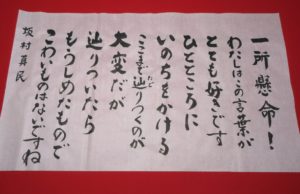 一所懸命!
わたしはこの言葉が
とても好きです
ひとところに
いのちをかける
ここまで辿りつくのが
たど
大変だが
辿りついたら
もうしめたもので
こわいものはないですね
坂村真民